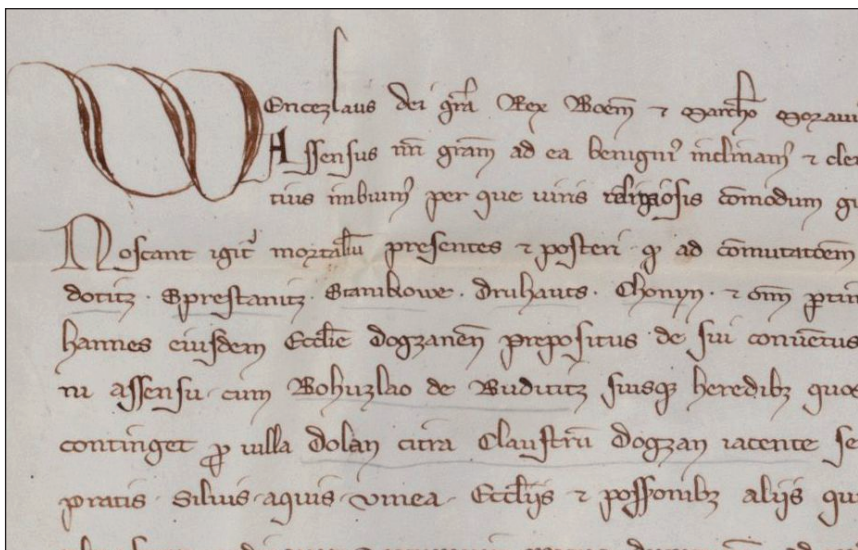 Wencezlaus dei gra Rex Boem ⁊ Marcho Moraui
Assensus nri gram ad ea benigni inclinam ⁊ cle
tius imbuim per que uiris religiosis comodum
Noscant igit mortaliu presentes ⁊ posteri · ad comutatoem
dotitz · Sprestanitz · Stankowe · Druhauts · ⁊ om ptin
hannes eiusdem Ecclie dogzanen prepositus de sui conuentus
ni assensu · cum Bohuzlao de Budititz suisq heredibz quos
continget p uilla dolan citra Claustru dogzan iacente se
pratis · Siluis · aquis · vinea · Eccliis ⁊ possonibz aliis qu